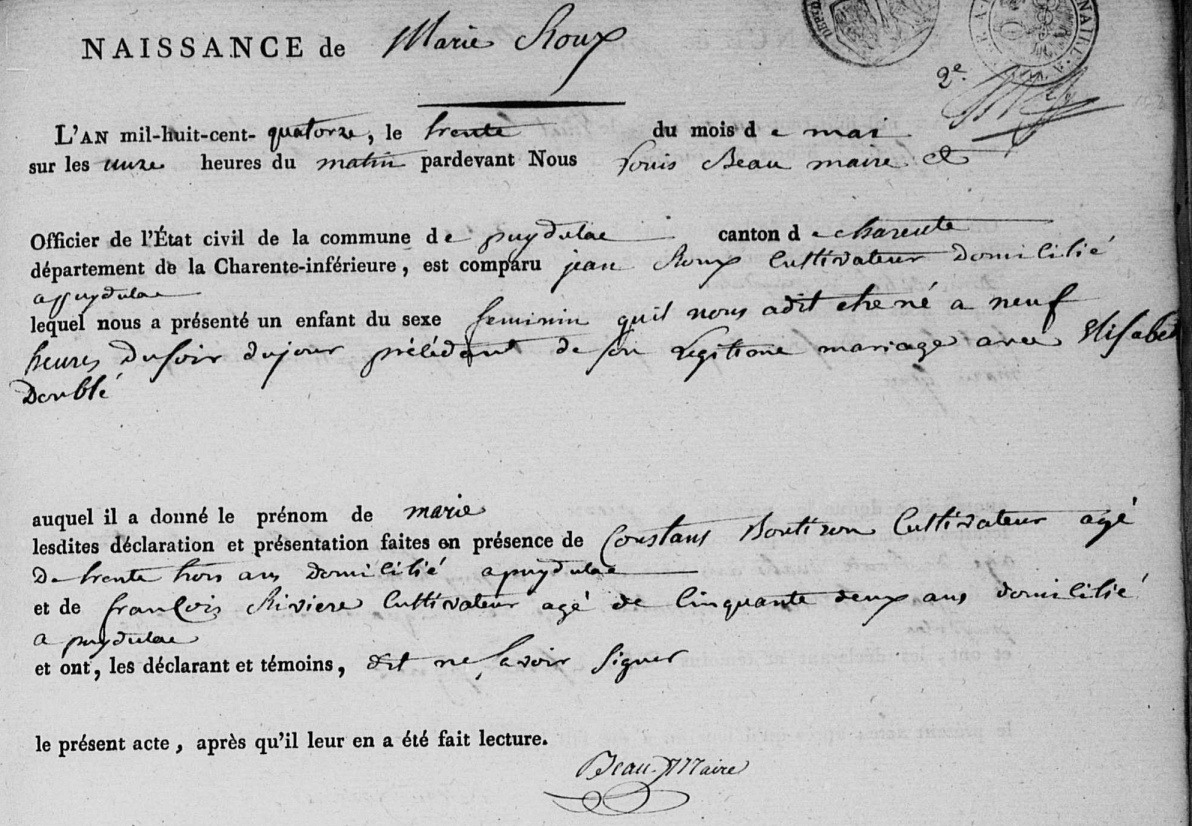 NAISSANCE de Marie Roux
2e
L'AN mil-huit-cent- quatorze, le trente du mois d e mai
sur les unze heures du matin pardevant Nous Louis Beau maire et
Officier de l'État civil de la commune de puydulac canton d e charente
département de la Charente-inférieure, est comparu jean Roux Cultivateur domicilié
a puydulac
lequel nous a présenté un enfant du sexe feminin qu'il nous adit etre né a neuf
heures Dusoir dujour précédant de son Legitime mariage avec Elisabet
Doublé
auquel il a donné le prénom de marie
lesdites déclaration et présentation faites en présence de Constans Boutiron Cultivateur agé
De trente trois ans domicilié apuydulac
et de françois Riviere Cultivateur agé de Cinquante deux ans domicilié
a puydulac
et ont, les déclarant et témoins, dit ne savoir Signer
le présent acte, après qu'il leur en a été fait lecture.
Beau Maire